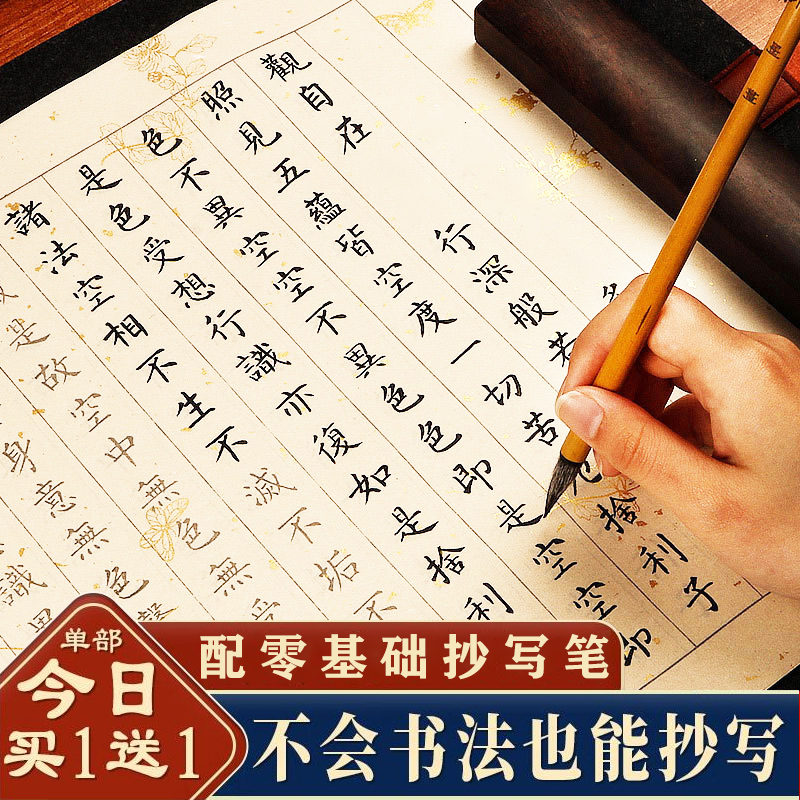 觀自在行深般若
照見五蘊皆空度一切苦厄捨利子
色不異空空不異色色即是空空即
是色受想行識亦復如是捨利
諸法空相不生不滅不垢不
是故空中無色無受
身意無色聲
識
单部
今日
买1送1
配零基础抄写笔
不会书法也能抄写